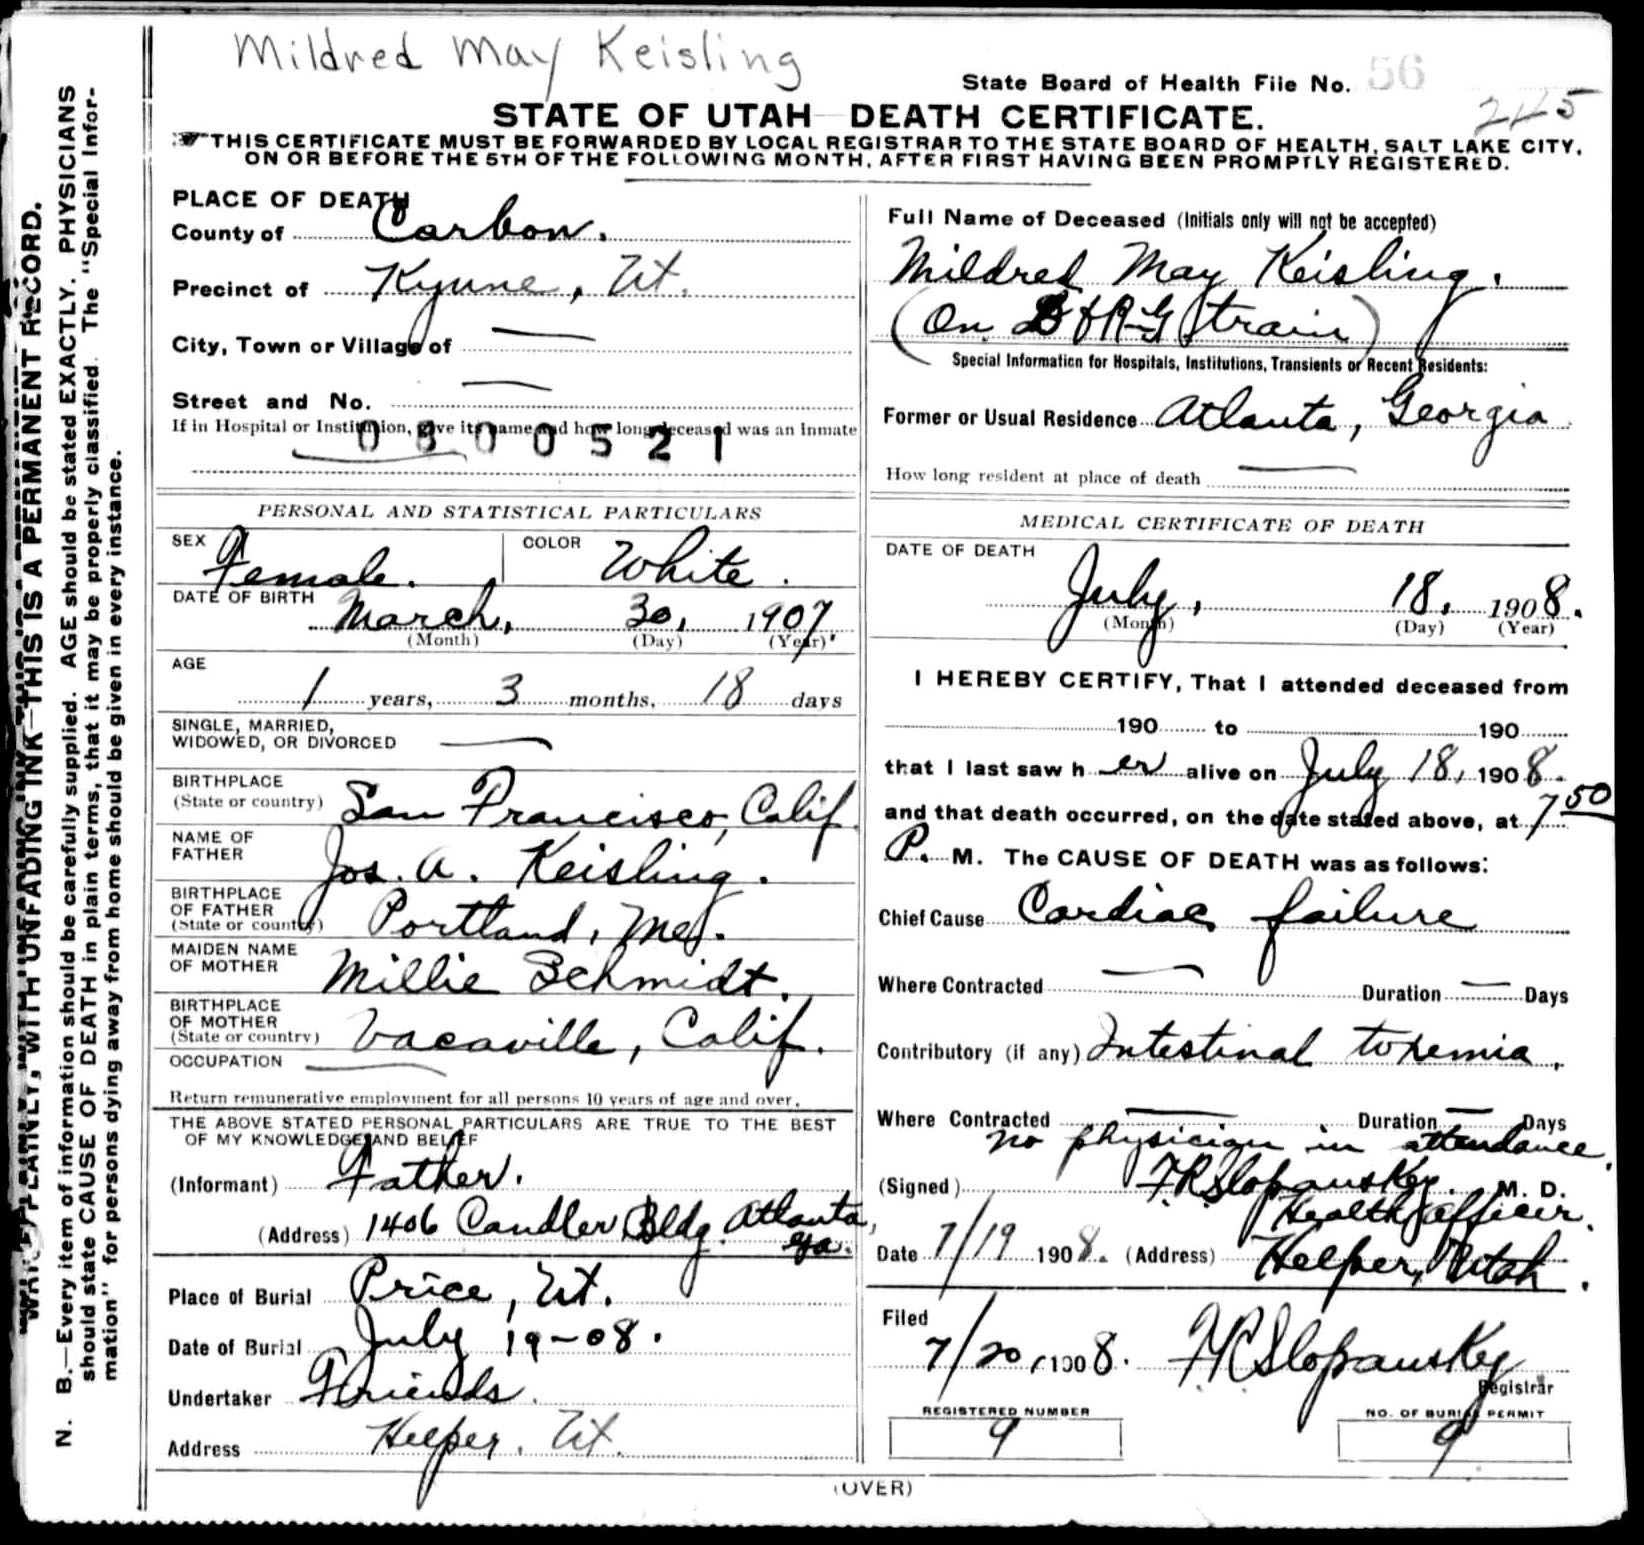 Mildred May Keisling
State Board of Health File No. 56
245
STATE OF UTAH DEATH CERTIFICATE.
THIS CERTIFICATE MUST BE FORWARDED BY LOCAL REGISTRAR TO THE STATE BOARD OF HEALTH, SALT LAKE CITY,
ON OR BEFORE THE 5TH OF THE FOLLOWING MONTH, AFTER FIRST HAVING BEEN PROMPTLY REGISTERED.
WRITE PLAINLY, WITH UNFADING INK—THIS IS A PERMANENT RECORD.
N. B.—Every item of information should be carefully supplied. AGE should be stated EXACTLY. PHYSICIANS
should state CAUSE OF DEATH in plain terms, that it may be properly classified. The "Special Infor-
mation" for persons dying away from home should be given in every instance.
PLACE OF DEATH
County of Carbon.
Precinct of Kyune, Ut.
City, Town or Village of —
Street and No. —
If in Hospital or Institution, give its name and how long deceased was an inmate
0800521
PERSONAL AND STATISTICAL PARTICULARS
SEX Female. COLOR White.
DATE OF BIRTH March, 30, 1907.
(Month) (Day) (Year)
AGE
1 years, 3 months, 18 days
SINGLE, MARRIED,
WIDOWED, OR DIVORCED —
BIRTHPLACE
(State or country) San Francisco, Calif
NAME OF
FATHER Jos. A. Keisling.
BIRTHPLACE
OF FATHER
(State or country) Portland, Me.
MAIDEN NAME
OF MOTHER Millie Schmidt.
BIRTHPLACE
OF MOTHER
(State or country) Vacaville, Calif.
OCCUPATION —
Return remunerative employment for all persons 10 years of age and over.
THE ABOVE STATED PERSONAL PARTICULARS ARE TRUE TO THE BEST
OF MY KNOWLEDGE AND BELIEF
(Informant) Father.
(Address) 1406 Candler Bldg. Atlanta,
Ga.
Place of Burial Price, Ut.
Date of Burial July 19-08.
Undertaker Friends.
Address Helper, Ut.
Full Name of Deceased (Initials only will not be accepted)
Mildred May Keisling.
(On D & R-G train)
Special Information for Hospitals, Institutions, Transients or Recent Residents:
Former or Usual Residence Atlanta, Georgia
How long resident at place of death —
MEDICAL CERTIFICATE OF DEATH
DATE OF DEATH
July, 18, 1908.
(Month) (Day) (Year)
I HEREBY CERTIFY, That I attended deceased from
190 to 190
that I last saw her alive on July 18, 1908.
and that death occurred, on the date stated above, at 7 50
P. M. The CAUSE OF DEATH was as follows:
Chief Cause Cardiac failure
Where Contracted — Duration — Days
Contributory (if any) Intestinal toxemia,
Where Contracted — Duration — Days
no physician in attendance.
(Signed) F R Slopansky. M. D.
Health Officer.
Date 7/19 1908. (Address) Helper, Utah.
Filed
7/20, 1908. F R Slopansky
Registrar
REGISTERED NUMBER
9
NO. OF BURIAL PERMIT
9
(OVER)